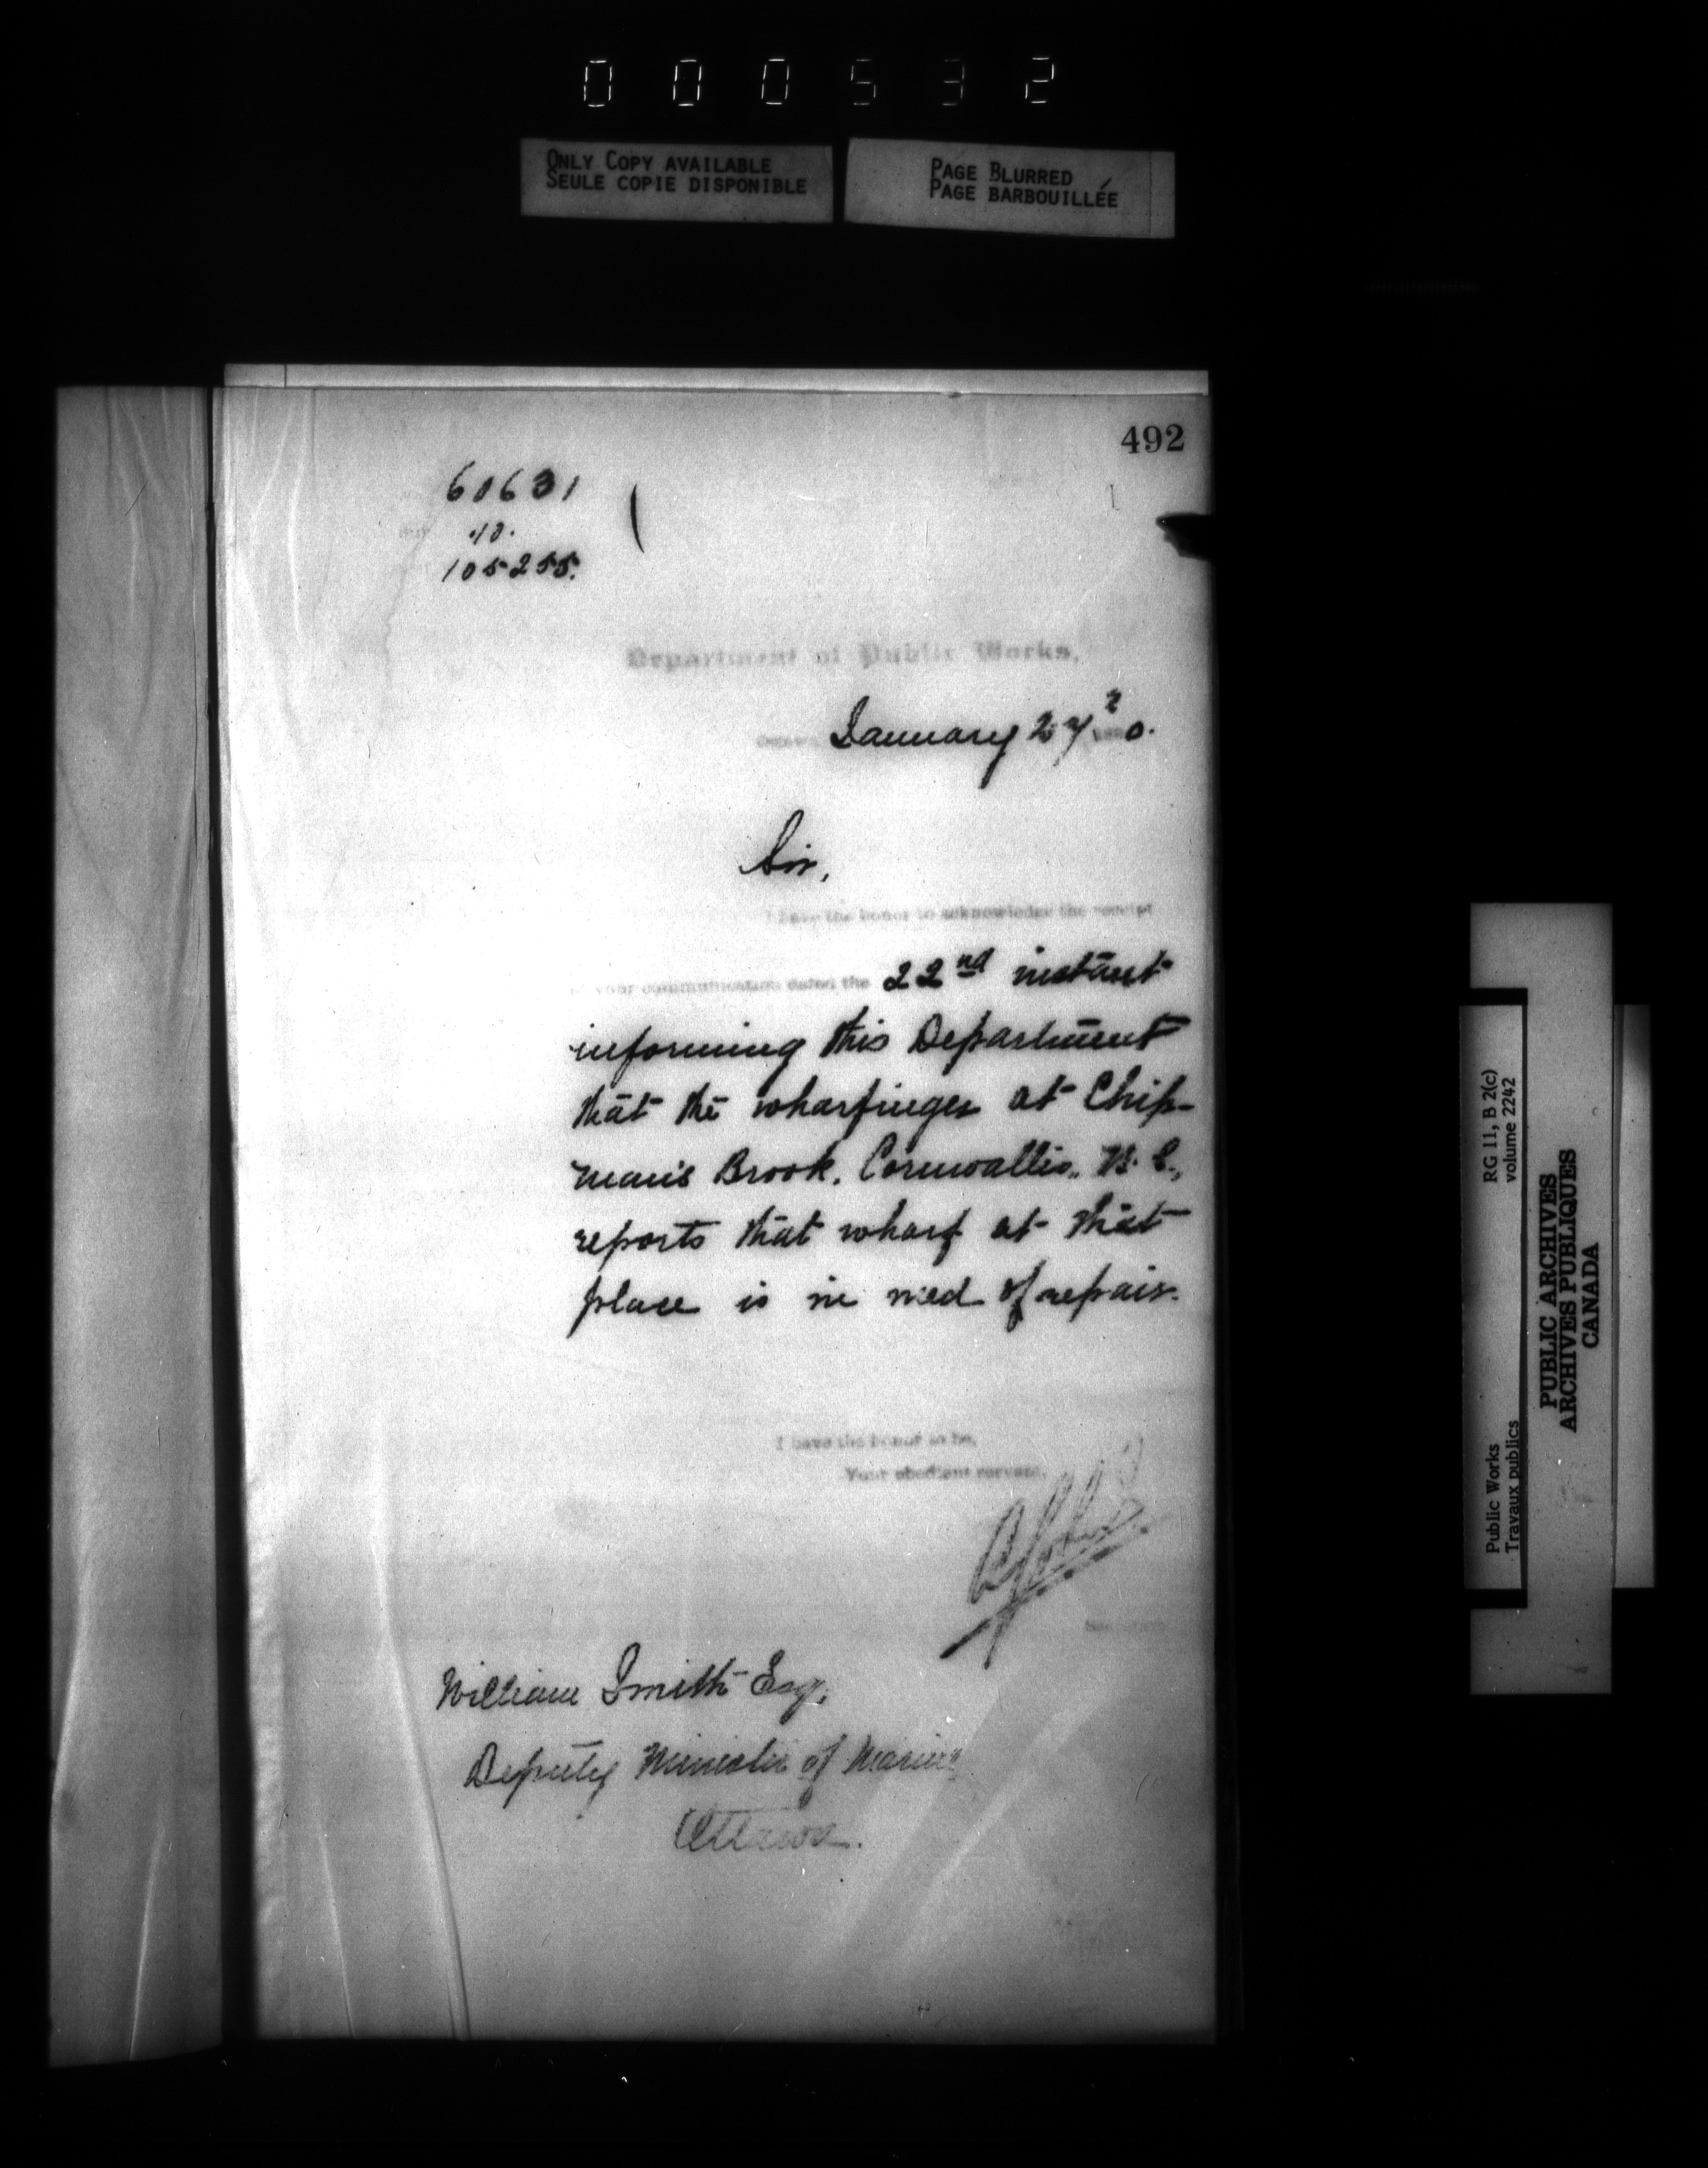 000532
ONLY COPY AVAILABLE
SEULE COPIE DISPONIBLE
PAGE BLURRED
PAGE BARBOUILLÉE
492
60631
105255.
Department of Public Works,
January 27 0.
Sir,
I have the honor to acknowledge the receipt
of your communication dated the 22nd instant
informing this Department
that the wharfinger at Chip-
man's Brook, Cornwallis,
reports that wharf at that
place is in need of repair.
I have the honor to be,
Your obedient servant,
William Smith Esq.
Deputy Minister of Marine
Ottawa.
RG 11, B 2(c)
volume 2242
Public Works
Travaux publics
PUBLIC ARCHIVES
ARCHIVES PUBLIQUES
CANADA